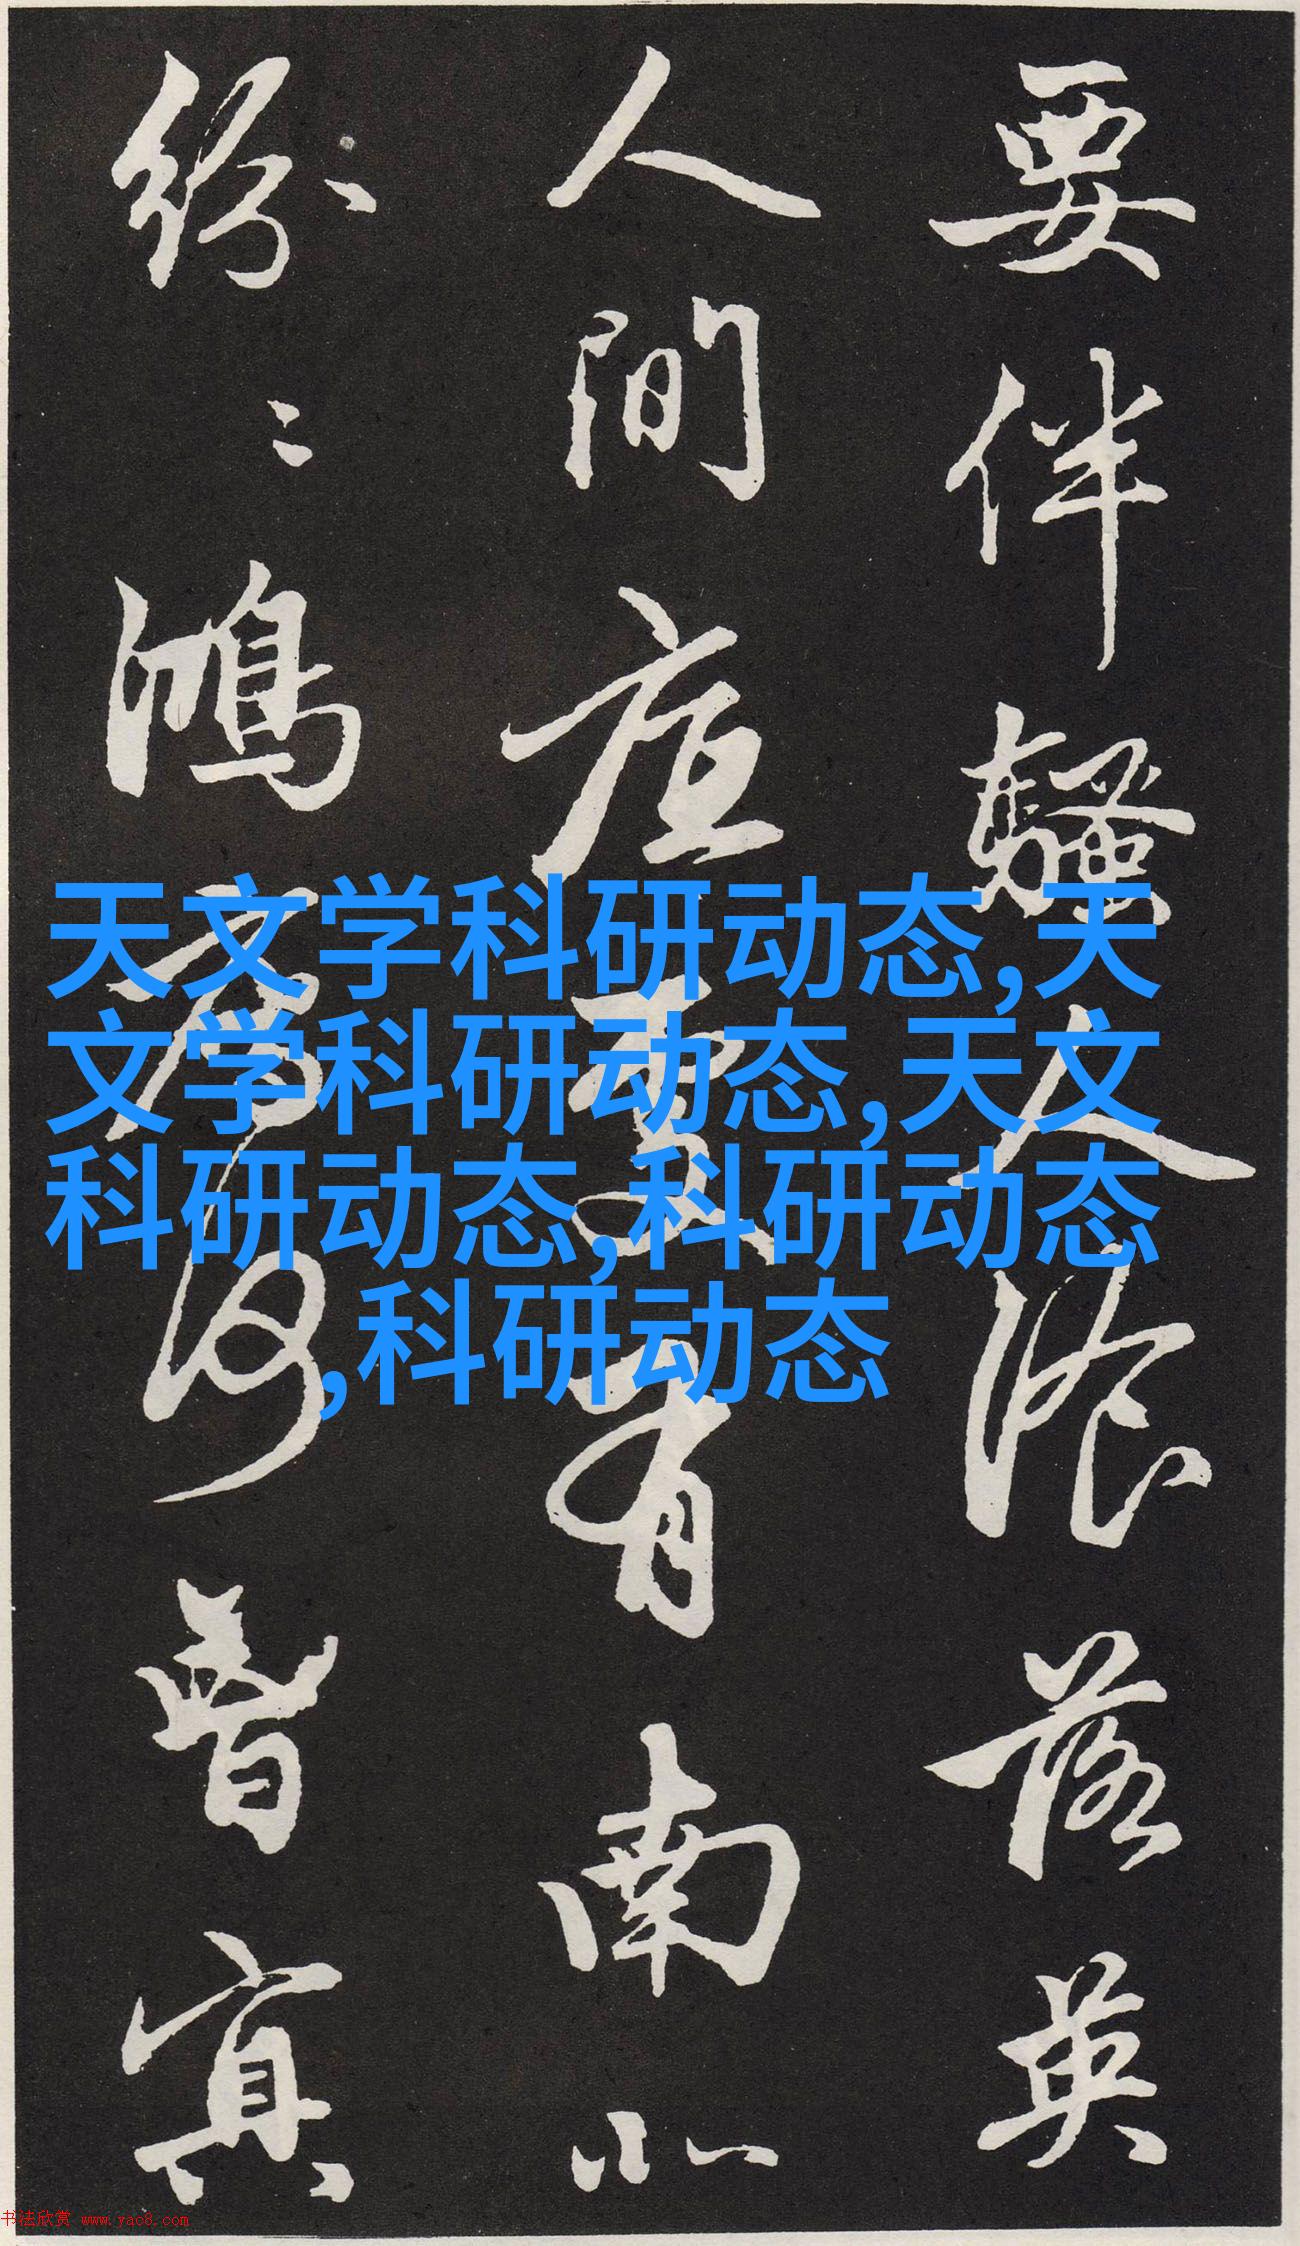 要伴騷人浪落英
人間應更有南北
紛〻鴻鴈何曾賓
天文学科研动态,天
文学科研动态,天文
科研动态,科研动态
,科研动态
书法欣赏 www.yac8.com